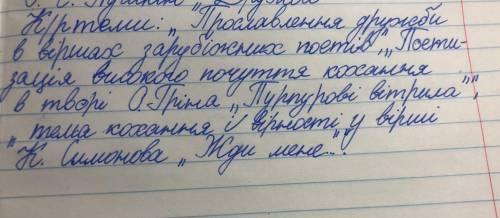 К/р теми: „Прославлення дружби
в віршах зарубіжних поетів", „Поети-
зація високого почуття кохання
в творі О.Гріна „Пурпурові вітрила",
„тема кохання і вірності у вірші
К. Симонова „Жди мене"..